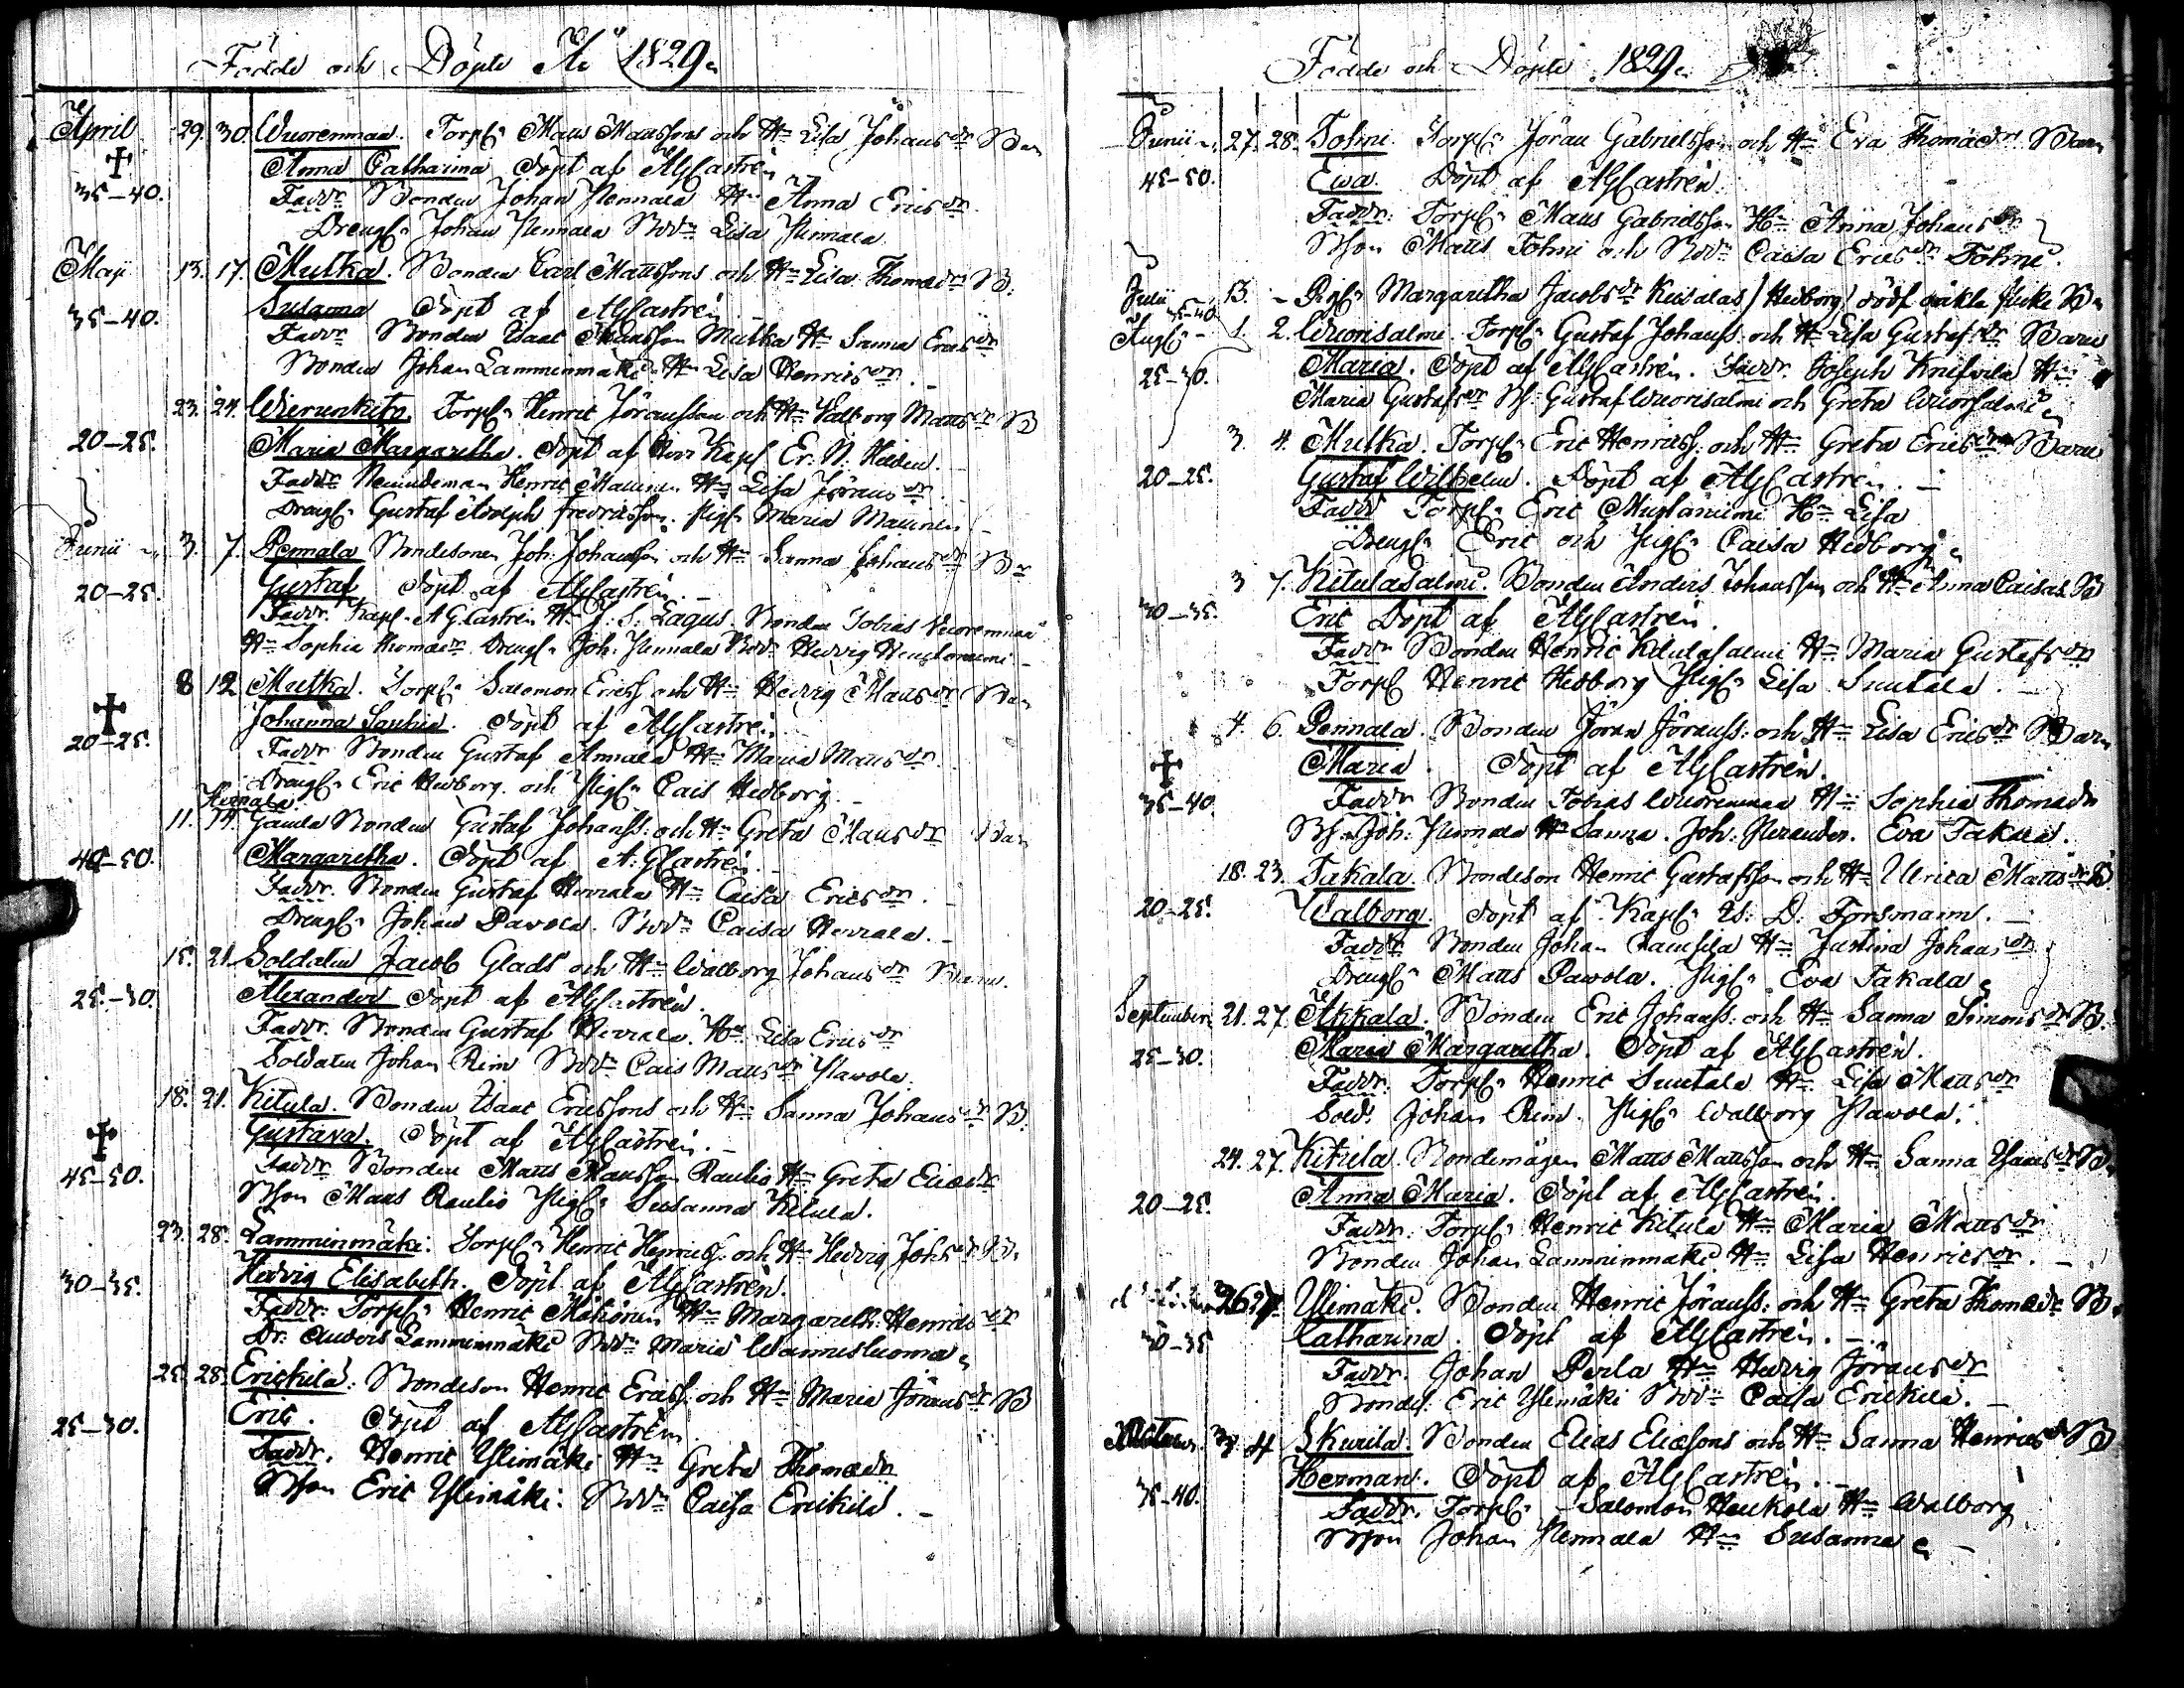 Födde och Döpte År 1829.
April 29. 30. Wuorenmaa. Torp. Matts Mattssons och H. Lisa Johansdr Barn
35–40. Anna Catharina Döpt af AGCastrén
Faddr. Bonden Johan Pennala H. Anna Ericsdr
Dreng. Johan Pennala Bdr Lisa Pennala
Maji 13. 17. Mulka. Bonden Carl Mattssons och H. Lisa Thomædr B.
35–40. Susanna Döpt af AGCastrén
Faddr Bonden Isaac Mattsson Mulka H. Sanna Ericsdr
Bonden Johan Lamminmäki H. Lisa Henricsdr.
23. 24. Torp. Henric Jöransson och H. Walborg Mattsdr B
20–25. Maria Margaretha. Döpt af Kapl Er. N. Hilden.
Faddr Henric Mattinen H. Lisa Jöransdr.
Dreng. Gustaf Adolph Fredricsson. Pig. Maria Mattinen
Junii 3. 7. Pennala Bondesonen Joh. Johansson och H. Sanna Johansdr B
20–25. Gustaf Döpt af AGCastrén.
Faddr. Kapl. A G Castrén H. J. S. Lagus. Bonden Tobias Vuorenmaa
H. Sophia Thomædr. Dreng. Joh. Pennala Bdr. Hedvig
8 12 Mulka. Torp. Salomon Ericss och H. Hedvig Mattsdr Barn
20–25. Johanna Sophia. Döpt af AGCastrén
Faddr Bonden Gustaf Annala H. Maria Mattsdr.
Dreng. Eric Hedborg och Pig. Cais Hedborg.
11. 14. Gamla Bonden Gustaf Johanss: och H. Greta Mattsdr Barn
40–50. Margaretha. Döpt af A.GCastrén
Faddr. Bonden Gustaf Herrala H. Caisa Ericsdr.
Dreng. Johan Pavola. Bdr. Caisa Herrala.
15. 21. Soldaten Jacob Glads och H. Walborg Johansdr Barn.
25–30. Alexander Döpt af AGCastrén.
Faddr. Bonden Gustaf Herrala. H. Lisa Ericsdr
Soldaten Johan Rim Bdr. Cais Mattsdr Pawola.
18. 21. Kitula. Bonden Isaac Ericssons och H. Sanna Johansdr B.
45–50. Gustava. Döpt af AGCastrén.
Faddr Bonden Matts Mattsson Raulio H. Greta Eliædr
Bson Matts Raulio Pig. Susanna Kitula.
23. 28. Lamminmäki. Torp. Henric Henricss. och H. Hedvig Johsdr. B.
30–35. Hedvig Elisabeth. Döpt af AGCastrén.
Faddr. Torp. Henric Mähönen H. Margareth. Henricsdr
Dr. Anders Lamminmäki Bdr. Maria Wannesluoma
25. 28. Erickilä. Bondeson Henric Ericss. och H. Maria Jöransdr B
25–30. Eric. Döpt af AGCastrén
Faddr. Henric Ylimäki H. Greta Thomædr
Bson Eric Ylimäki. Bdr Caisa Erickilä.
Födde och Döpte 1829.
Junii 27. 28. Tolmi. Torp. Jöran Gabrielsson och H. Eva Thomædr Barn
45–50. Ewa. Döpt af AGCastrén
Faddr. Torp. Matts Gabrielsson H. Anna Johansdr
Bson Matts Tolmi och Bdr. Caisa Ericsdr Tolmi.
Julii 13. Pig. Margaretha Jacobsdr (Hedborg) B.
35–40
Aug. 1. 2. Wuorisalmi. Torp. Gustaf Johanss. och H. Lisa Gustafsdr Barn
25–30. Maria. Döpt af AGCastrén. Faddr. Joseph Knifsilä H.
Maria Gustafsdr Bs. Gustaf Wuorisalmi och Greta Wuorisalmi
3. 4. Mulka. Torp. Eric Henricss. och H. Greta Ericsdr Barn
20–25. Gustaf Wilhelm. Döpt af AGCastrén.
Faddr Torp. Eric Mustaniemi H. Lisa
Dreng. Eric och Pig. Caisa Hedborg
3 7. Kitulasalmi. Bonden Anders Johansson och H. Anna Caisas B
30–35. Eric Döpt af AGCastrén.
Faddr Bonden Henric Kitulasalmi H. Maria Gustafsdr
Torp Henric Hedborg Pig. Lisa Suutala.
4. 6. Pennala. Bonden Jöran Jöranss. och H. Lisa Ericsdr Barn
35–40. Maria. Döpt af AGCastrén.
Faddr Bonden Tobias Wuorenmaa H. Sophia Thomædr
Bs. Joh. Pennala H. Sanna. Joh. Eva Takala.
18. 23. Takala. Bondeson Henric Gustafsson och H. Ulrica Mattsdr B
20–25. Walborg. Döpt af Kapl. Es. D. Forsmann.
Faddr. Bonden Johan H. Justina Johansdr
Dreng. Matts Pawola. Pig. Eva Takala
September 21. 27. Akkala. Bonden Eric Johanss. och H. Sanna Simonsdr B.
25–30. Maria Margaretha. Döpt af AGCastrén.
Faddr. Torp. Henric Suutala H. Lisa Mattsdr
Sold. Johan Rim. Pig. Walborg Pawola.
24. 27. Kitula. Bondemågen Matts Mattsson och H. Sanna Isacsdr B.
20–25. Anna Maria. Döpt af AGCastrén.
Faddr. Torp. Henric Kitula H. Maria Mattsdr
Bonden Johan Lamminmäki H. Lisa Henricsdr.
26 27. Ylimäki. Bonden Henric Jöranss. och H. Greta Thomædr B.
30–35 Catharina. Döpt af AGCastrén.
Faddr. Johan Perla H. Hedvig Jöransdr
Bondes. Eric Ylimäki Bdr Caisa Erickilä.
October 3 4 Skurila. Bonden Elias Eliæsons och H. Sanna Henricsdr B
35–40. Herman. Döpt af AGCastrén.
Faddr. Torp. Salomon Heukola H. Walborg
Bson Johan Pennala H. Susanna